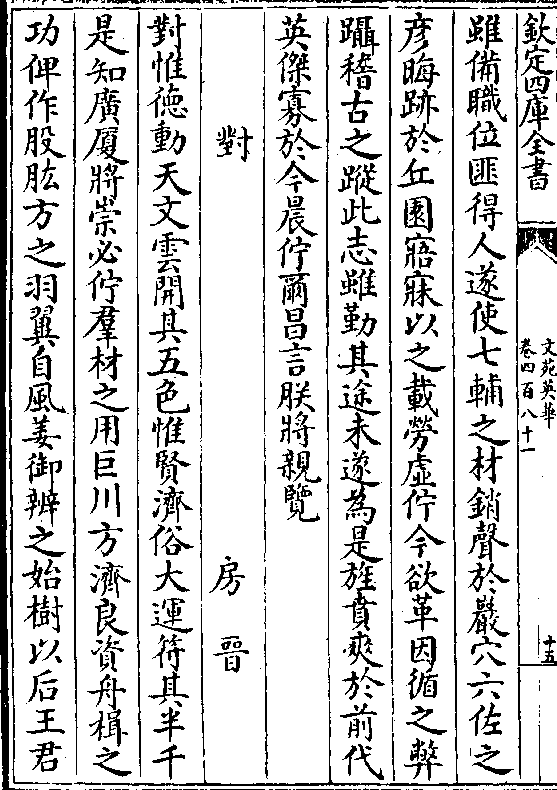 欽定四庫全書
文苑英華
卷四百八十一
十五
雖備職位匪得人遂使七輔之材銷聲於巖穴六佐之
彦晦跡於丘園寤寐以之載勞虚佇今欲革因循之弊
躡稽古之蹤此志雖勤其途未遂為是旌賁爽於前代
英傑寡於今晨佇爾昌言朕將親覽
對 房晉
對惟德動天文雲開其五色惟賢濟俗大運符其半千
是知廣厦將崇必佇羣材之用巨川方濟良資舟楫之
功俾作股肱方之羽翼自風姜御辨之始樹以后王君